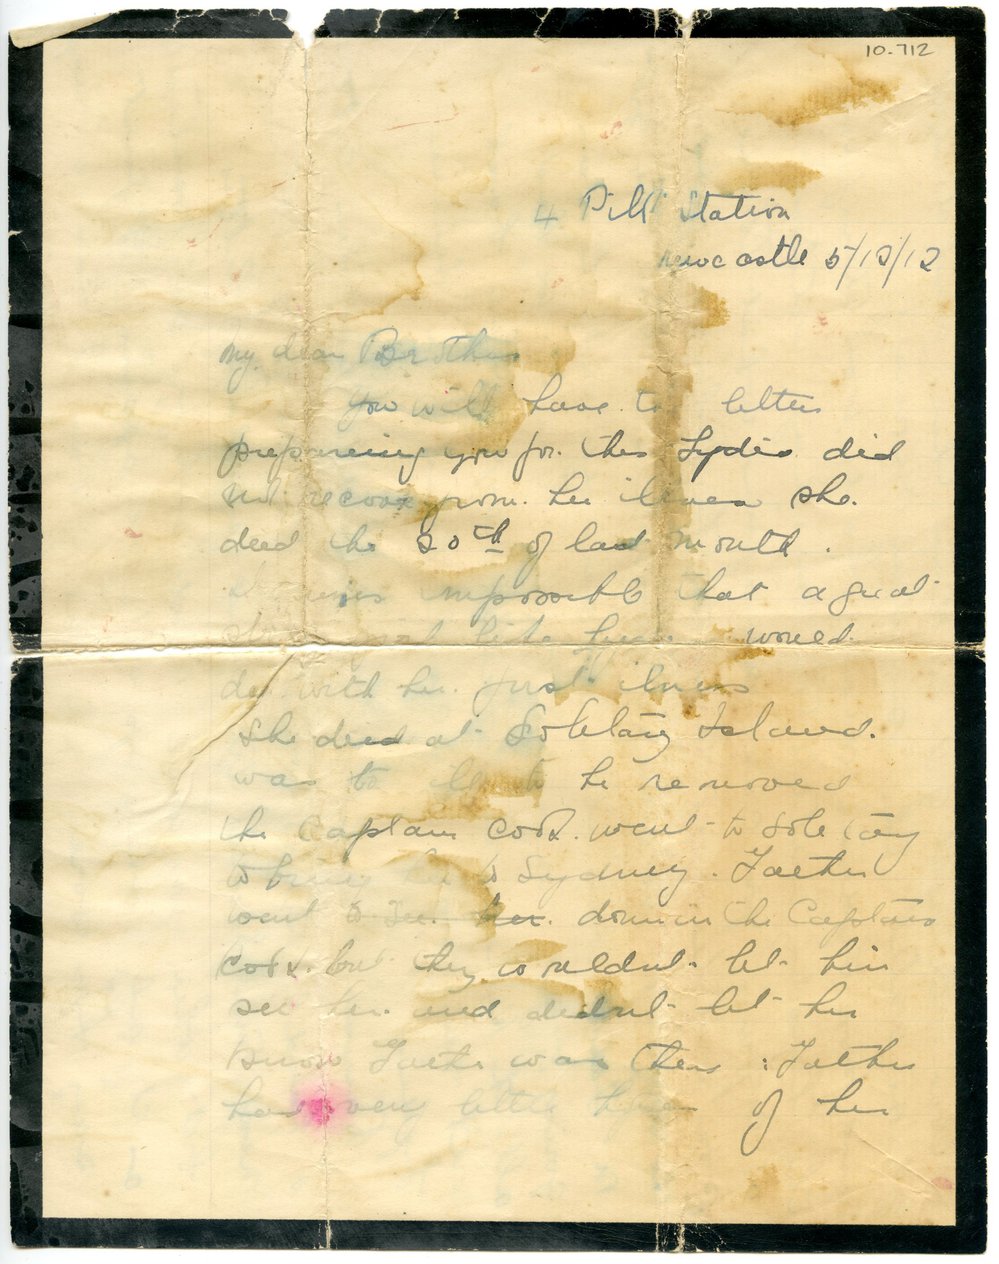 10-712
4 Pilot Station
Newcastle 5/12/12
My dear Brother
You will have to letters
prepareing you for this Lydia did
not recover from her ilness she
died the 20th of last month.
impossible that a great
like would
die with her first ilness
She died at Solitary Island.
was to be removed
the Captain Cook went to Solitary
to bring her to Sydney. Father
went to see her. down in the Captain
Cook. but they wouldnt let him
see her and didnt let her
know Father was there : Father
had very little hopes of her